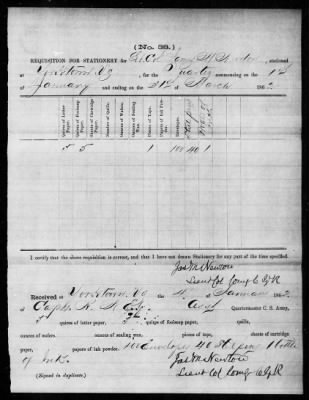 (No. 38.)
REQUISITION FOR STATIONERY for Lt Col Jas M Newton, stationed
at Yorktown Va, for the Quarter commencing on the 1st
of January and ending on the 31st of March 186
Quires of Letter Paper.
Quires of Foolscap Paper.
Quires of Cartridge Paper.
Quills.
Ounces of Wafers.
Ounces of Sealing Wax.
Pieces of Tape.
Papers of Ink Powder.
Envelopes.
5 5 1 100 40 1
I certify that the above requisition is correct, and that I have not drawn Stationery for any part of the time specified.
Jas M Newton
Lieut Col Comg 6 Ga R
Received at Yorktown Va the of January 186
of Capt Quartermaster C. S. Army,
5 quires of letter paper, 5 quires of foolscap paper,
ounces of wafers, ounces of sealing wax, pieces of tape, sheets of cartridge
paper, papers of ink powder. 100 Envelopes 40 1 bottle
of ink.
Jas M Newton
Lieut Col Comg 6 Ga R
(Signed in duplicate.)